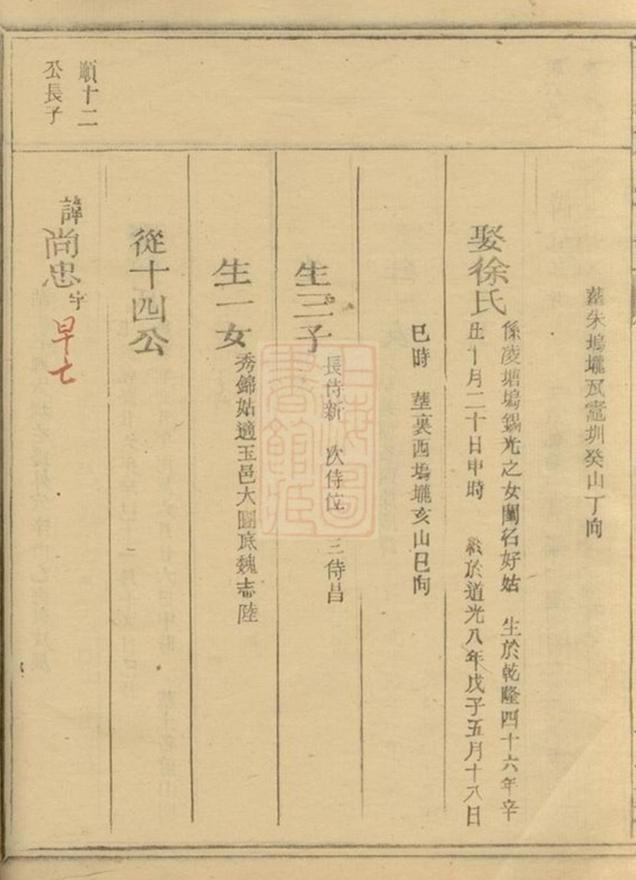 葬朱塢壠瓦窰圳癸山丁向
娶徐氏
係凌塘塢錫光之女閨名好姑 生於乾隆四十六年辛
丑十月二十日申時 終於道光八年戊子五月十八日
巳時 塟裏西塢壠亥山巳向
生三子
長侍新 次侍位 三侍昌
生一女
秀錦姑適玉邑大園底魏志陸
從十四公
順十二
公長子
諱尚忠字
早亡
上海圖
書館藏